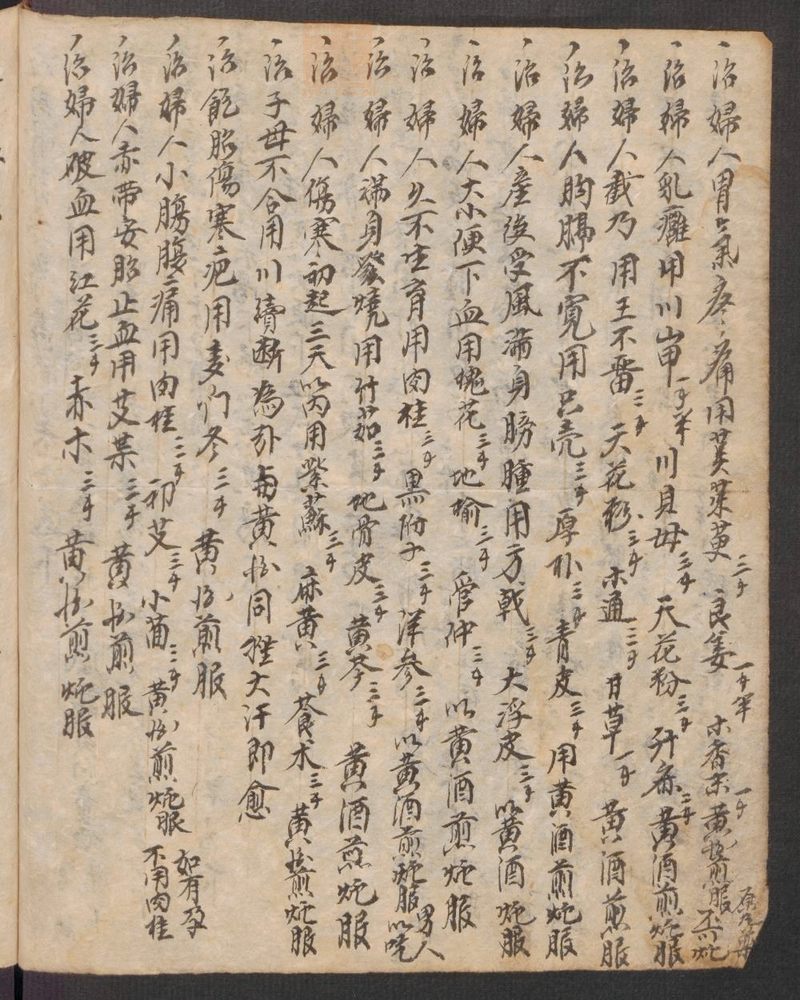 治婦人胃氣疼痛用英菜萸三手 良姜一手半 木香末一手 黃酒煎服
治婦人乳癰用川山甲一手半 川貝母三手 天花粉三手 升麻三手 黃酒煎炖服
治婦人截乃用王不畱三手 天花粉三手 木通三手 甘草一手 黃酒煎服
治婦人胸膈不寬用只壳三手 厚朴三手 青皮三手 用黃酒煎炖服
治婦人產後受風滿身膀腫用方戟三手 大浮皮三手 以黃酒炖服
治婦人大小便下血用槐花三手 地榆三手 管仲三手 以黃酒煎炖服
治婦人久不生育用肉桂三手 黑附子三手 洋參三手 以黃酒煎炖服 男人
治婦人滿身發燒用竹茹三手 地骨皮三手 黃芩三手 黃酒煎炖服
治婦人傷寒初起三天以內用紫蘇三手 麻黃三手 蒼朮三手 黃酒煎炖服
治子母不合用川續断為引 黃酒同推大汗即愈
治飽胎傷寒疤用麦门冬三手 黃酒煎服
治婦人小腸腹痛用肉桂二手 祁艾三手 小茴三手 黃酒煎炖服 如有孕不用肉桂
治婦人赤帶安胎止血用艾葉三手 黃酒煎服
治婦人破血用红花三手 赤木三手 黃酒煎炖服